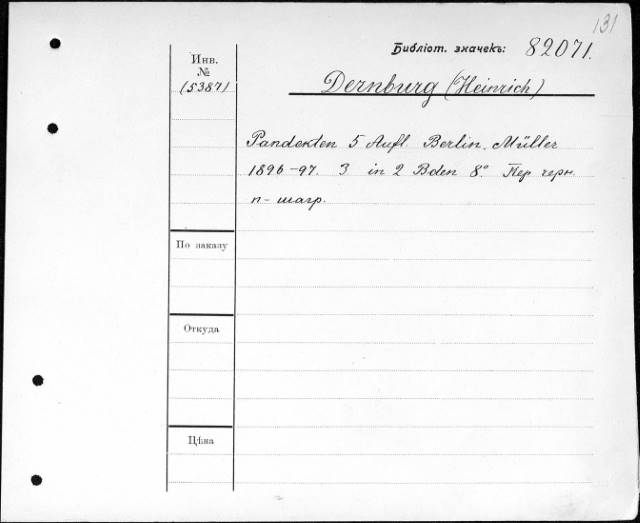 131
Библіот. значекъ: 82071.
Инв.
№
153871
Dernburg (Heinrich)
Pandekten 5 Aufl. Berlin. Müller
1896-97. 3 in 2 Bden 8° Пер черн.
п-шагр.
По заказу
Откуда
Цѣна